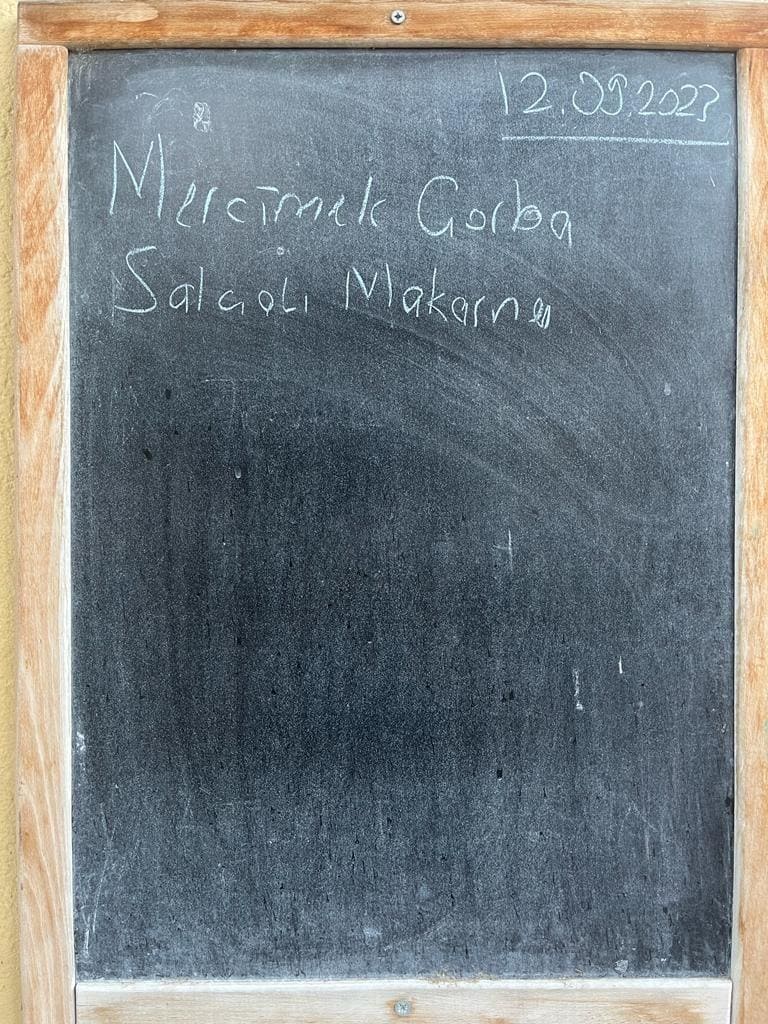 12.09.2023
Mercimek Çorba
Salçalı Makarna